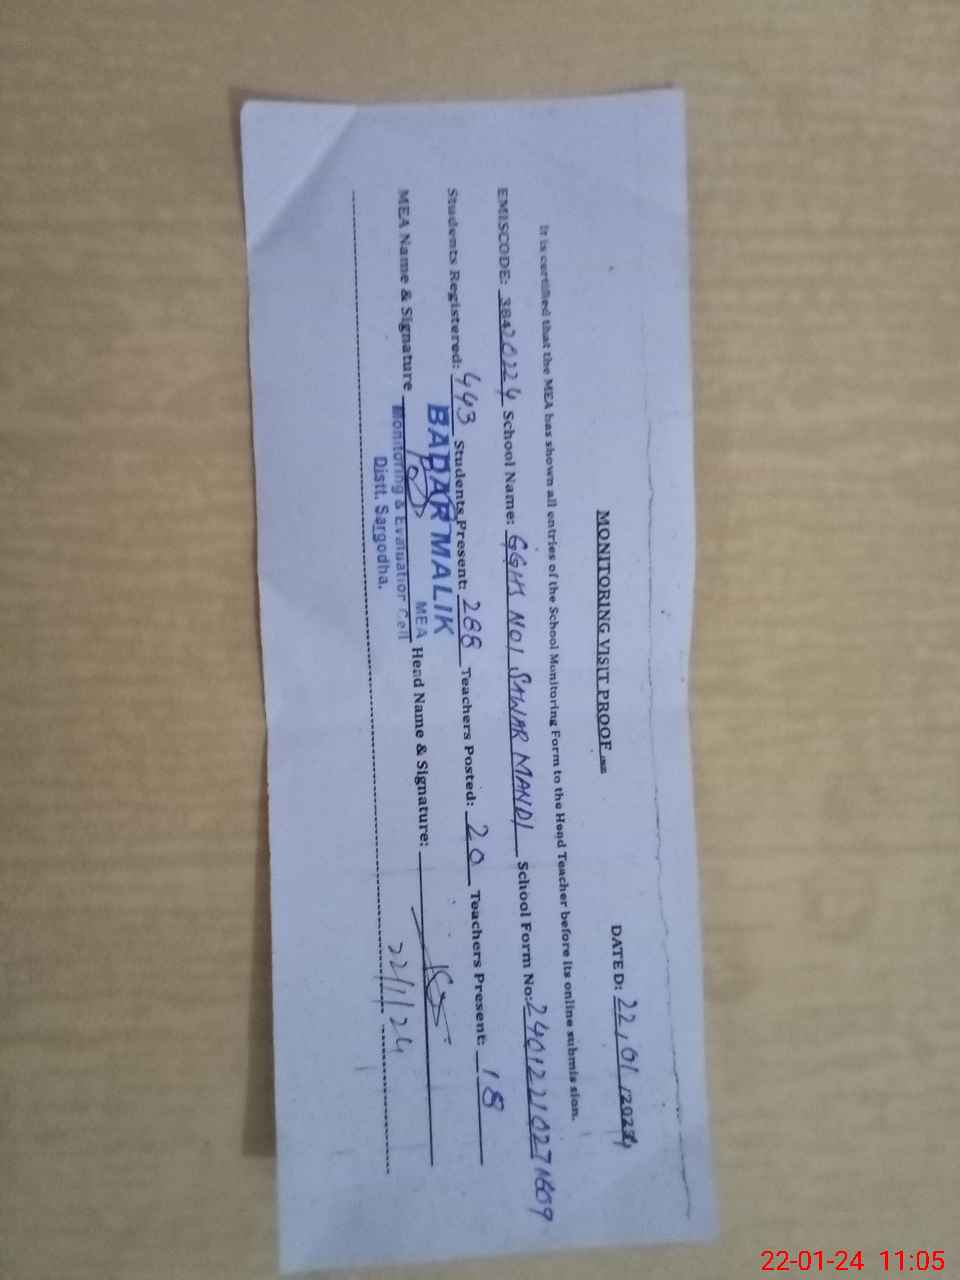 MONITORING VISIT PROOF
DATED: 22/01/2024
It is certified that the MEA has shown all entries of the School Monitoring Form to the Head Teacher before its online submission.
EMISCODE: 38420224 School Name: GGHS NO1 SAWAR MANDI School Form No: 2401221027 1609
Students Registered: 443 Students Present: 288 Teachers Posted: 20 Teachers Present: 18
BADAR MALIK
MEA
MEA Name & Signature Head Name & Signature:
Monitoring & Evaluation Cell
Distt. Sargodha.
22/1/24
22-01-24 11:05